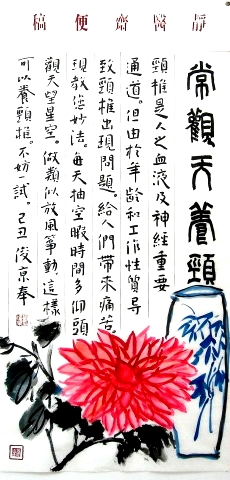 靜醫齋便稿
常觀天養頸
頸椎是人之血液及神經重要
通道。但由於年齡和工作性質导
致頸椎出現問題。给人們带來痛苦。
現教您妙法。每天抽空暇時間多仰頭
觀天望星空。做類似放風筝動,這樣
可以養頸椎。不妨一試。己丑俊京奉